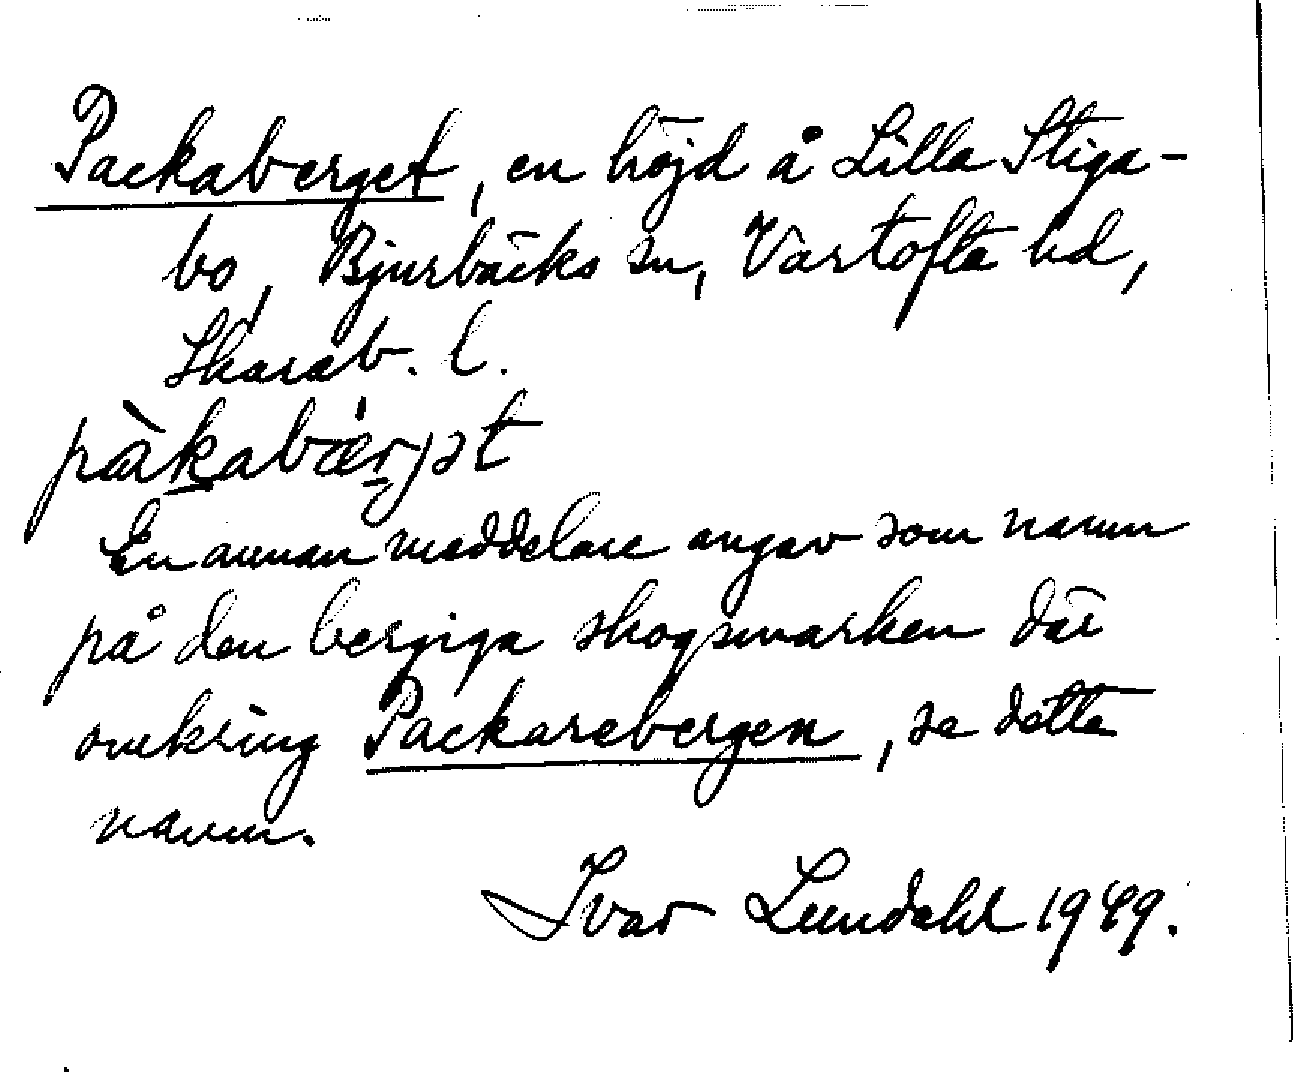 Packaberget, en höjd å Lilla Stiga-
bo, Bjurbäcks sn, Vartofta hd,
Skarab. l.
pàkabær̥jət
En annan meddelare angav som namn
på den bergiga skogsmarken där
omkring Packarebergen, se detta
namn.
Ivar Lundahl 1949.